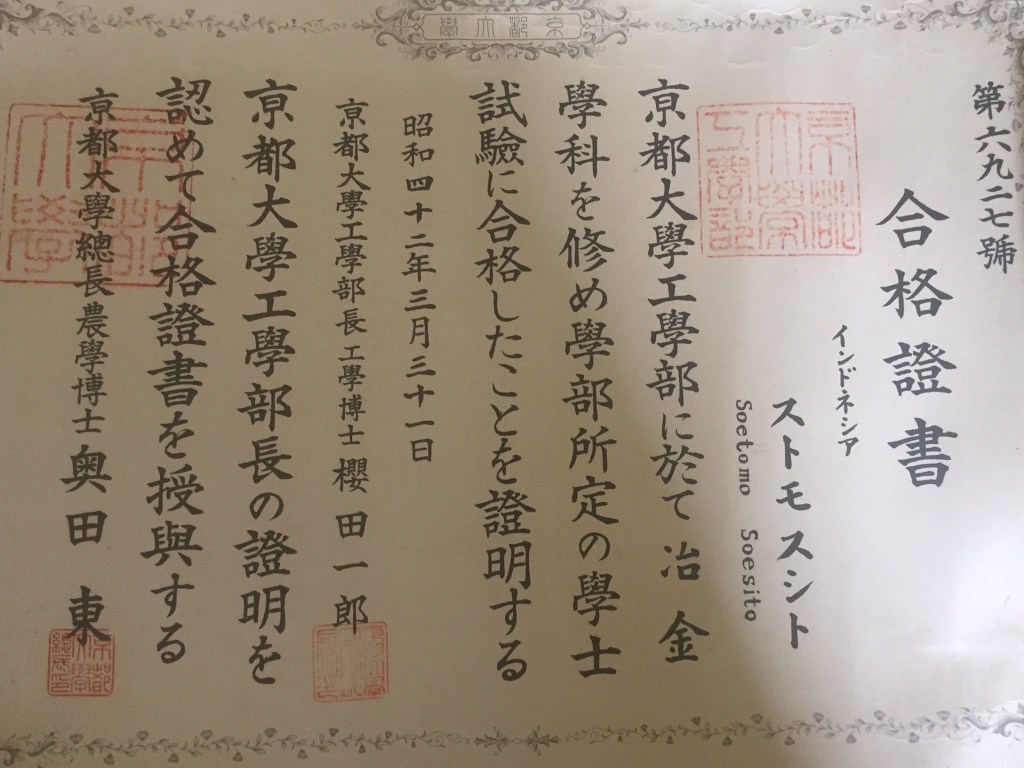 京都大學
第六九二七號
合格證書
インドネシア
ストモスシト
Soetomo Soesito
京都大學工學部に於て冶金
學科を修め學部所定の學士
試驗に合格したことを證明する
昭和四十二年三月三十一日
京都大學工學部長工學博士 櫻田一郎
京都大學工學部長の證明を
認めて合格證書を授與する
京都大學總長農學博士 奥田東
京都大學工學部